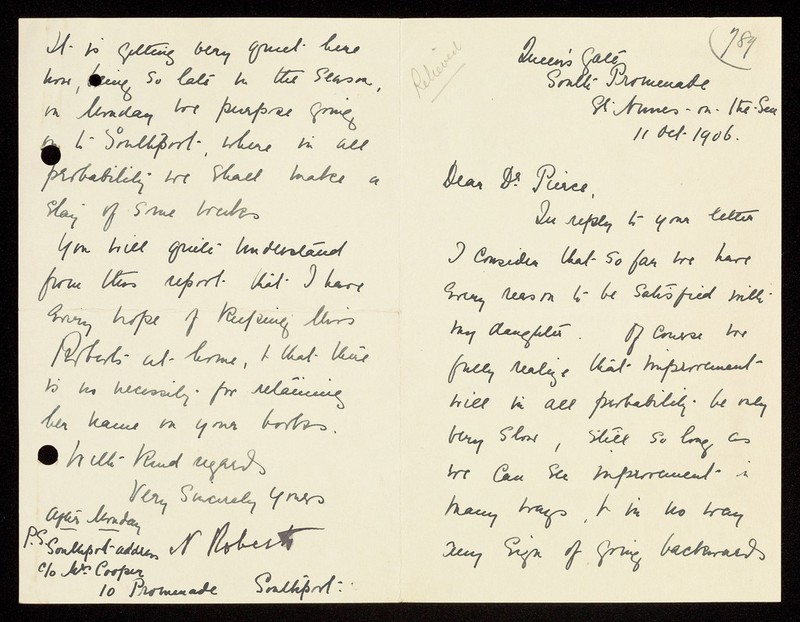 789
Relieved
Queen's Gate
South Promenade
St. Annes-on-the-Sea
11 Oct. 1906.
Dear Dr Pierce,
In reply to your letter
I consider that so far we have
every reason to be satisfied with
my daughter. Of course we
fully realize that improvement
will in all probability be only
very slow, still so long as
we can see improvement in
many ways, & in no way
any sign of going backwards
It is getting very quiet here
now, being so late in the season,
on Monday we purpose going
on to Southport, where in all
probability we shall make a
stay of some weeks
You will quite understand
from this report that I have
every hope of keeping Miss
Roberts at home, & that there
is no necessity for retaining
her name on your books.
With kind regards
Very Sincerely Yours
N Roberts
After Monday
P.S. Southport address
c/o Mrs Cooper
10 Promenade Southport.